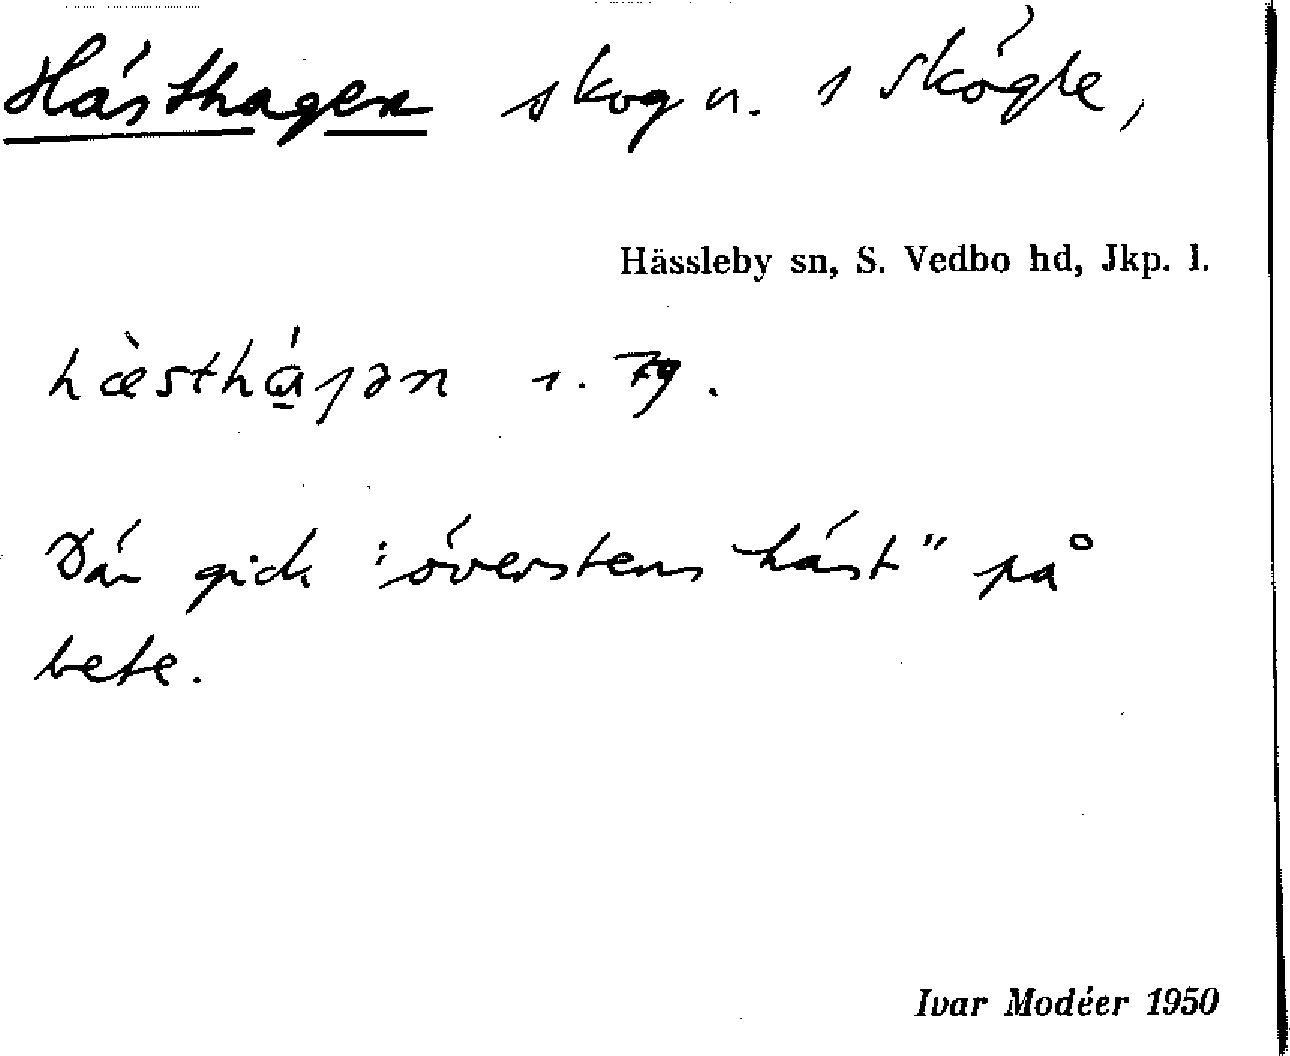 Hästhagen skog n. i Skögle,
Hässleby sn, S. Vedbo hd, Jkp. l.
hæ̀sthá̱ɡən
Där gick "överstens häst" på
bete.
Ivar Modéer 1950